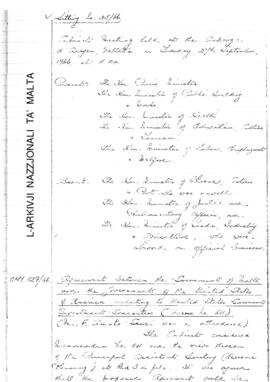 Sitting No. 35/66
Cabinet Meeting held at the Auberge
d'Aragon Valletta on Tuesday 27th September,
1966 at
Present: The Hon. Prime Minister
The Hon. Minister of Public Building
& Works.
The Hon. Minister of Health
The Hon. Minister of Education, Culture
& Tourism.
The Hon. Minister of Labour, Employment
& Welfare.
Absent: The Hon. Minister of Finance, Customs
& Port who was unwell
The Hon. Minister of Justice and
Parliamentary Affairs, and
The Hon. Minister of Trade, Industry
& Agriculture, who were
abroad on official business.
Agreement between the Government of Malta
and the Government of the United States
of America relating to United States Government
Investment Guaranties
was in attendance)
The Cabinet considered
Memorandum No. and the views thereon
of the Principal Assistant Secretary
at in file. It was agreed
that the proposed Agreement could be
L-ARKIVJI NAZZJONALI TA' MALTA